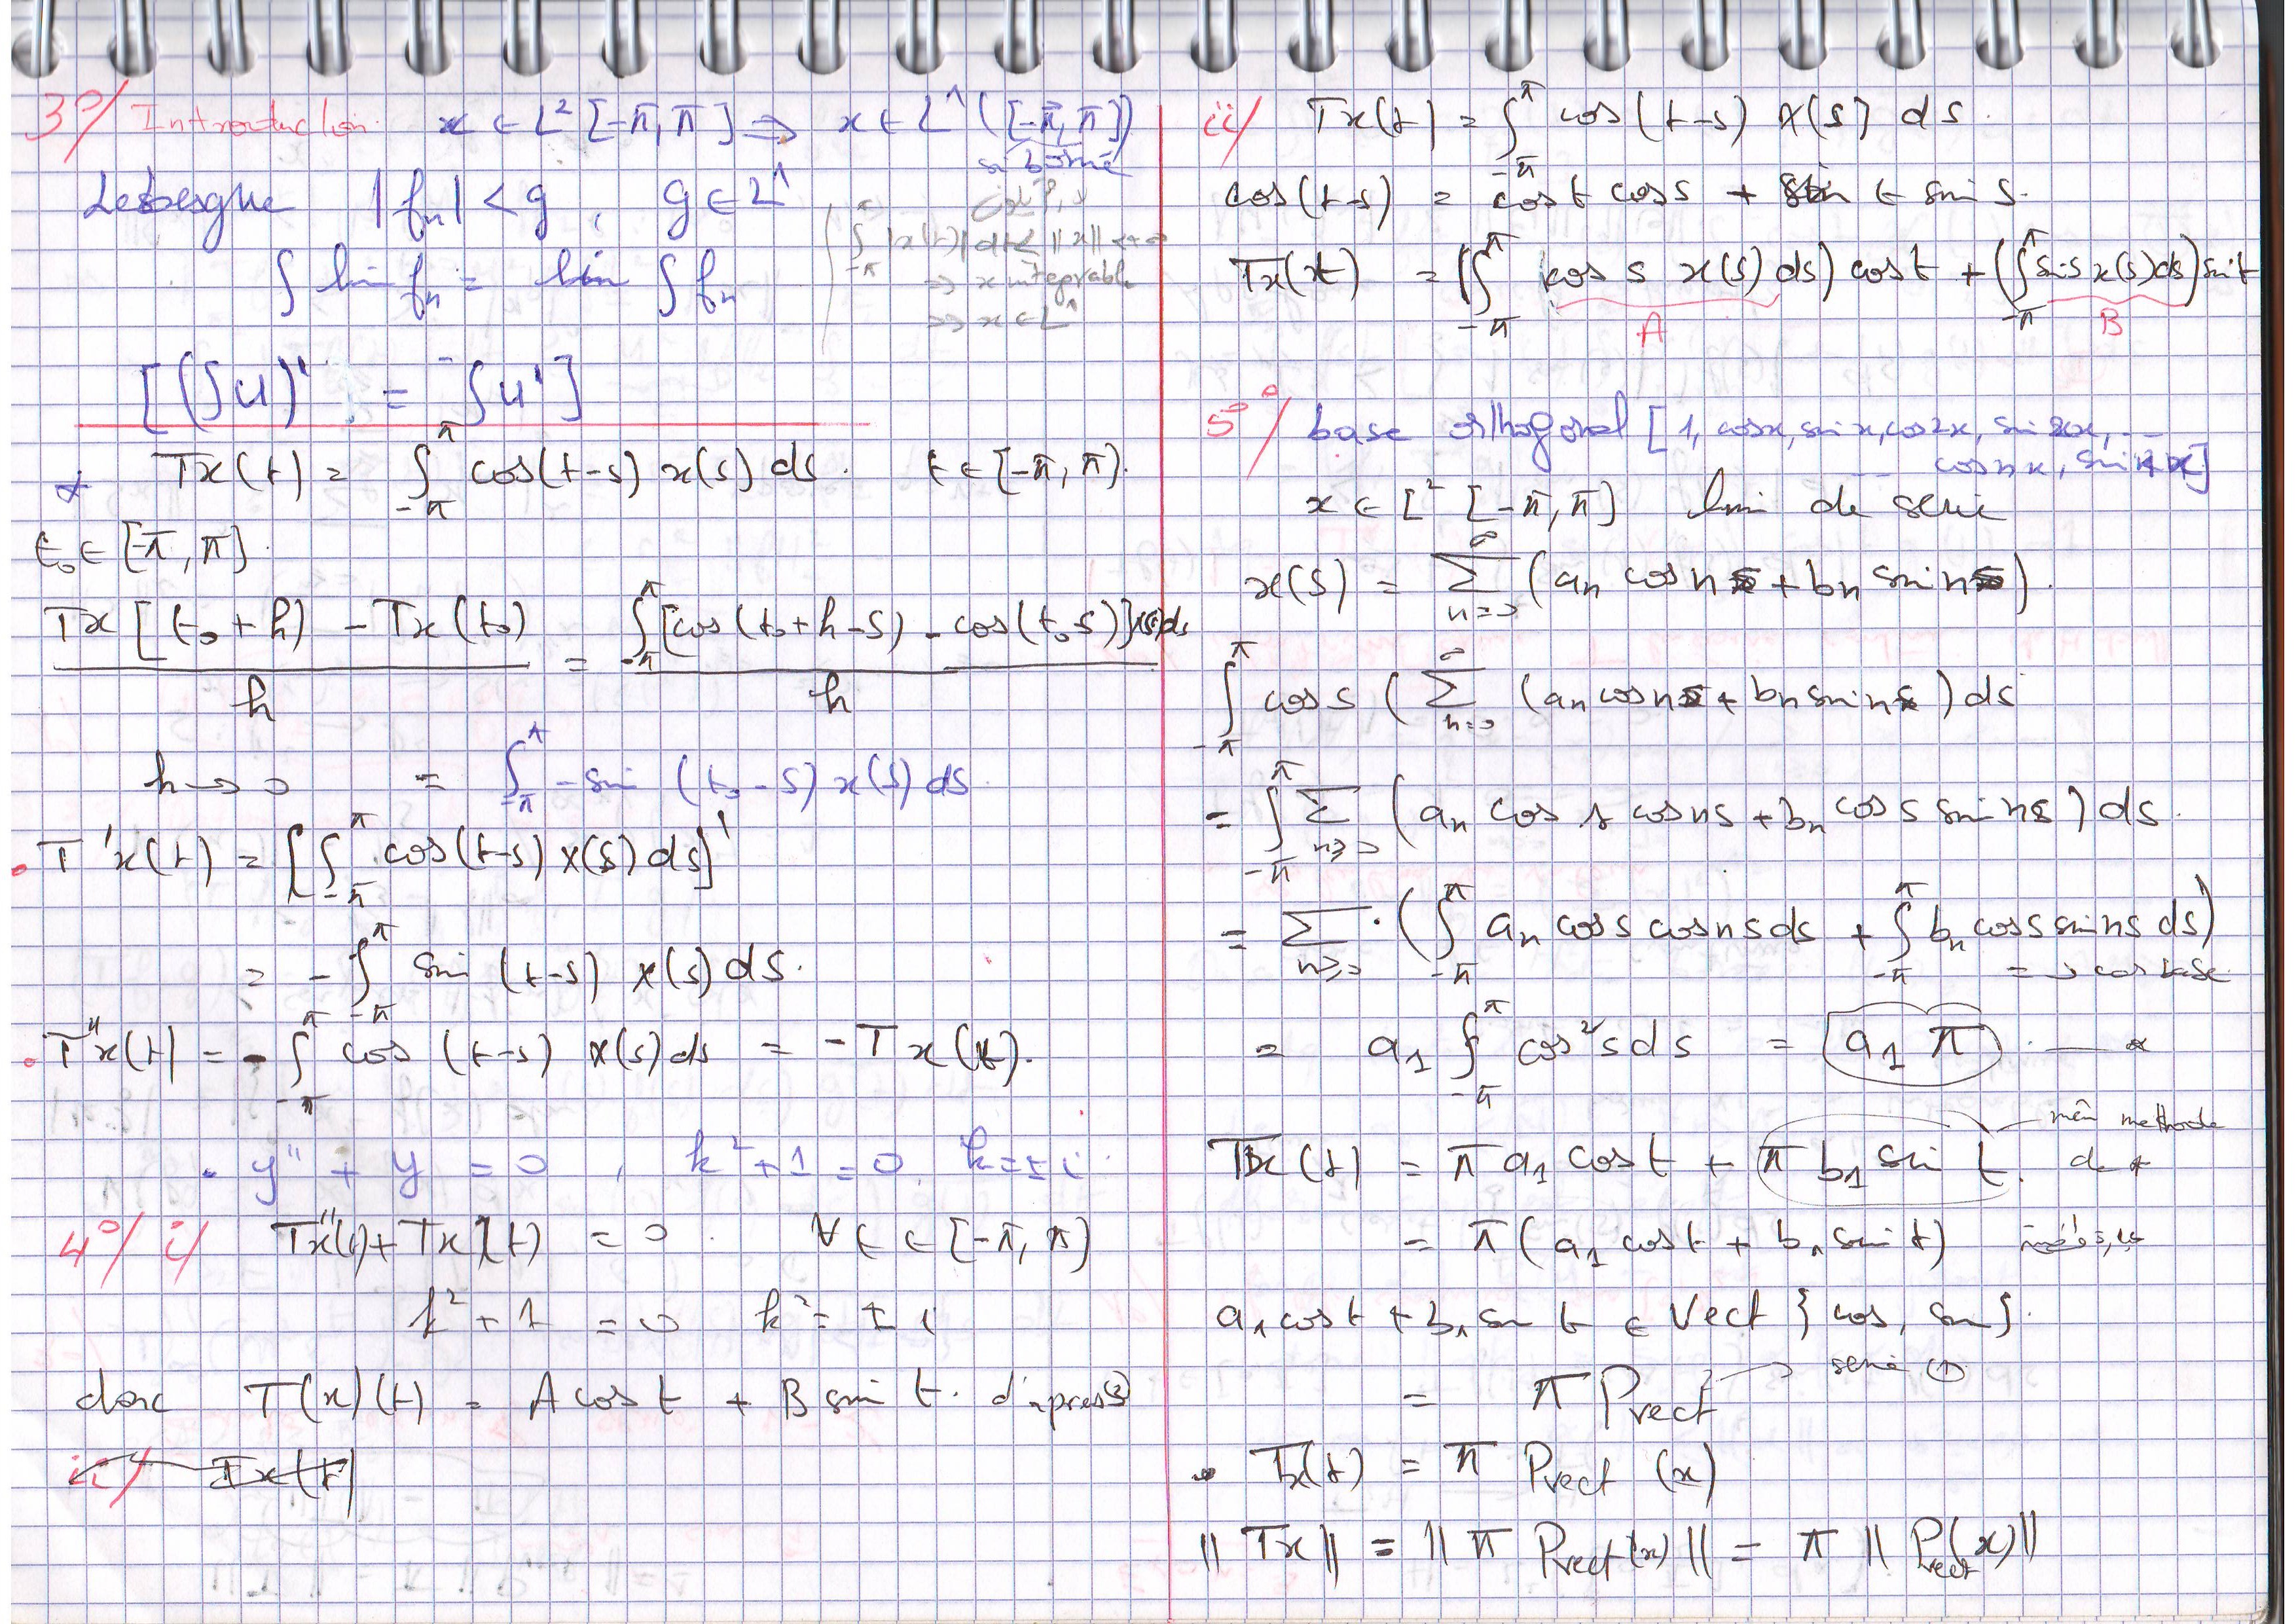 3°/ Introduction x ∈ L² [-π, π] ⟹ x ∈ L¹ ([-π, π])
borné
Lebesgue |fₙ| < g , g ∈ L¹
∫_{-π}^{π} |x(t)| dt ≤ ||x|| < +∞
∫ lim fₙ = lim ∫ fₙ
⟹ x integrable
⟹ x ∈ L¹
[(∫u)' = ∫u']
Tx(t) = ∫_{-π}^{π} cos(t-s) x(s) ds. t ∈ [-π, π].
t₀ ∈ [-π, π].
Tx[(t₀+h) - Tx(t₀) / h = ∫_{-π}^{π} [cos(t₀+h-s) - cos(t₀ s)] x(s) ds / h
h → 0 = ∫_{-π}^{π} -sin (t₀-s) x(s) ds
. T'x(t) = [∫_{-π}^{π} cos(t-s) x(s) ds]'
= - ∫_{-π}^{π} sin (t-s) x(s) ds.
. T''x(t) = - ∫_{-π}^{π} cos (t-s) x(s) ds = - Tx(t).
. y'' + y = 0 , k²+1 = 0, k = ± i.
4°/ i/ Tx''(t) + Tx(t) = 0. ∀ t ∈ [-π, π]
k² + 1 = 0 k² = ± i
donc T(x)(t) = A cos t + B sin t. d'apres 3
ii) Tx(t)
ii/ Tx(t) = ∫_{-π}^{π} cos(t-s) x(s) ds.
cos(t-s) = cos t cos s + sin t sin s.
Tx(t) = (∫_{-π}^{π} cos s x(s) ds) cos t + (∫_{-π}^{π} sin s x(s) ds) sin t
A B
5°/ base orthogonal [1, cos x, sin x, cos 2x, sin 2x, ...
... cos nx, sin nx]
x ∈ L² [-π, π] lim de serie
x(s) = ∑_{n=0}^{∞} (aₙ cos ns + bₙ sin ns).
∫_{-π}^{π} cos s (∑_{n=0}^{∞} (aₙ cos ns + bₙ sin ns) ds
= ∫_{-π}^{π} ∑_{n≥0} (aₙ cos s cos ns + bₙ cos s sin ns) ds.
= ∑_{n≥0} (∫_{-π}^{π} aₙ cos s cos ns ds + ∫_{-π}^{π} bₙ cos s sin ns ds)
= 0 car base
= a₁ ∫_{-π}^{π} cos² s ds = a₁ π
même methode
Tx(t) = π a₁ cos t + π b₁ sin t. de *
= π(a₁ cos t + b₁ sin t)
a₁ cos t + b₁ sin t ∈ Vect {cos, sin}.
= π P_vect → serie ①
. Tx(t) = π P_vect (x)
|| Tx || = || π P_vect(x) || = π || P_vect(x) ||